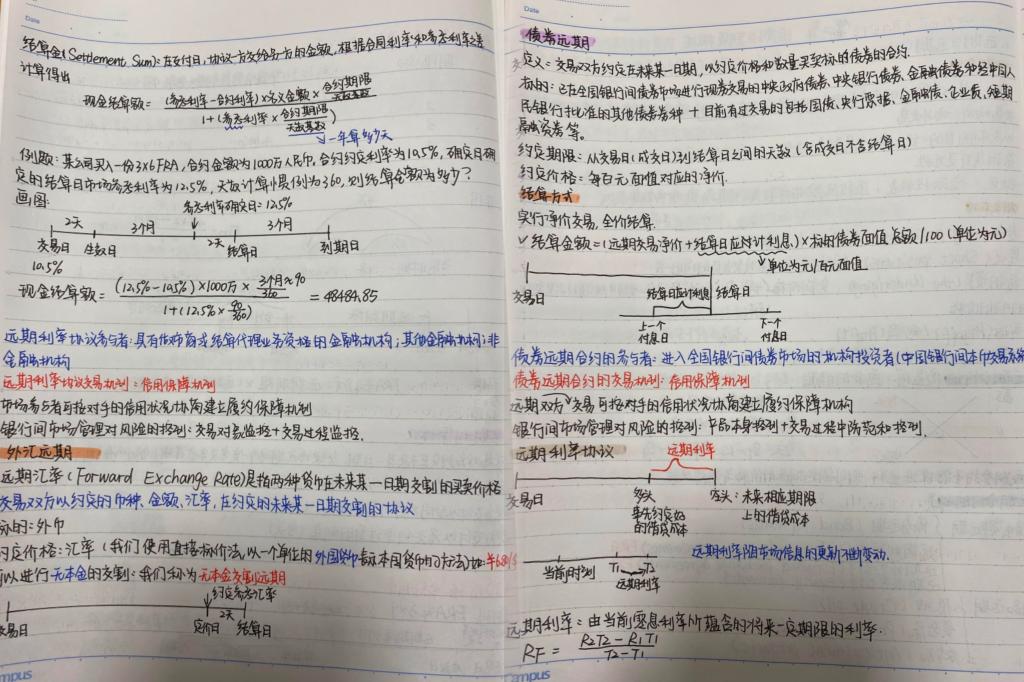 Date
结算金(Settlement Sum):在交付日,协议一方交给另一方的金额,根据合同利率和参考利率之差
计算得出
现金结算额= (参考利率-合约利率)×名义金额×合约期限/天数基数
1+(参考利率×合约期限/天数基数)
→一年算多少天
例题:某公司买一份3×6FRA,合约金额为1000万人民币,合约约定利率为10.5%,确定日确
定的结算日市场参考利率为12.5%,天数计算惯例为360,则结算金额为多少?
画图:
参考利率确定日=12.5%
2天 3个月 3个月
2天
交易日 生效日 结算日 到期日
10.5%
现金结算额= (12.5%-10.5%)×1000万×3个月≈90/360
1+(12.5%×90/360)
=48484.85
远期利率协议参与者:具有做市商或结算代理业务资格的金融机构;其他金融机构;非
金融机构
远期利率协议交易机制:信用保障机制
市场参与者可按对手的信用状况协商建立履约保障机制
银行间市场管理对风险的控制:交易对手监控+交易过程监控.
外汇远期
远期汇率(Forward Exchange Rate)是指两种货币在未来某一日期交割的买卖价格
交易双方以约定的币种、金额、汇率,在约定的未来某一日期交割的协议
标的:外币
约定价格:汇率(我们使用直接标价法,以一个单位的外国货币 本国货币的方法)如:¥6.8/$
可以进行无本金的交割:我们称为无本金交割远期
约定参考汇率
2天
交易日 定价日 结算日
Campus
Date
债券远期
定义:交易双方约定在未来某一日期,以约定价格和数量买卖标的债券的合约.
标的:已在全国银行间债券市场进行现券交易的中央政府债券、中央银行债券、金融债券和经中国人
民银行批准的其他债券券种+目前有过交易的包括国债、央行票据、金融债、企业债、短期
融资券等。
约定期限:从交易日(成交日)到结算日之间的天数(含成交日不含结算日)
约定价格:每百元面值对应的净价.
结算方式
实行净价交易,全价结算.
✓结算金额=(远期交易净价+结算日应计利息)×标的债券面值总额/100(单位为元)
↓单位为元/百元面值
交易日 结算日应计利息 结算日
上一个 下一个
付息日 付息日
债券远期合约的参与者:进入全国银行间债券市场的机构投资者(中国银行间本币交易系统
债券远期合约的交易机制:信用保障机制
远期双方交易可按对手的信用状况协商建立履约保障机构
银行间市场管理对风险的控制:产品本身控制+交易过程中防范和控制.
远期利率协议
远期利率
交易日 多头 空头:未来相应期限
事先约定好 上的借贷成本
的借贷成本
当前时刻 T1 T2
远期利率
远期利率随市场信息的更新不断变动.
远期利率:由当前零息利率所蕴含的将来一定期限的利率.
RF= R2T2-R1T1
T2-T1
Campus